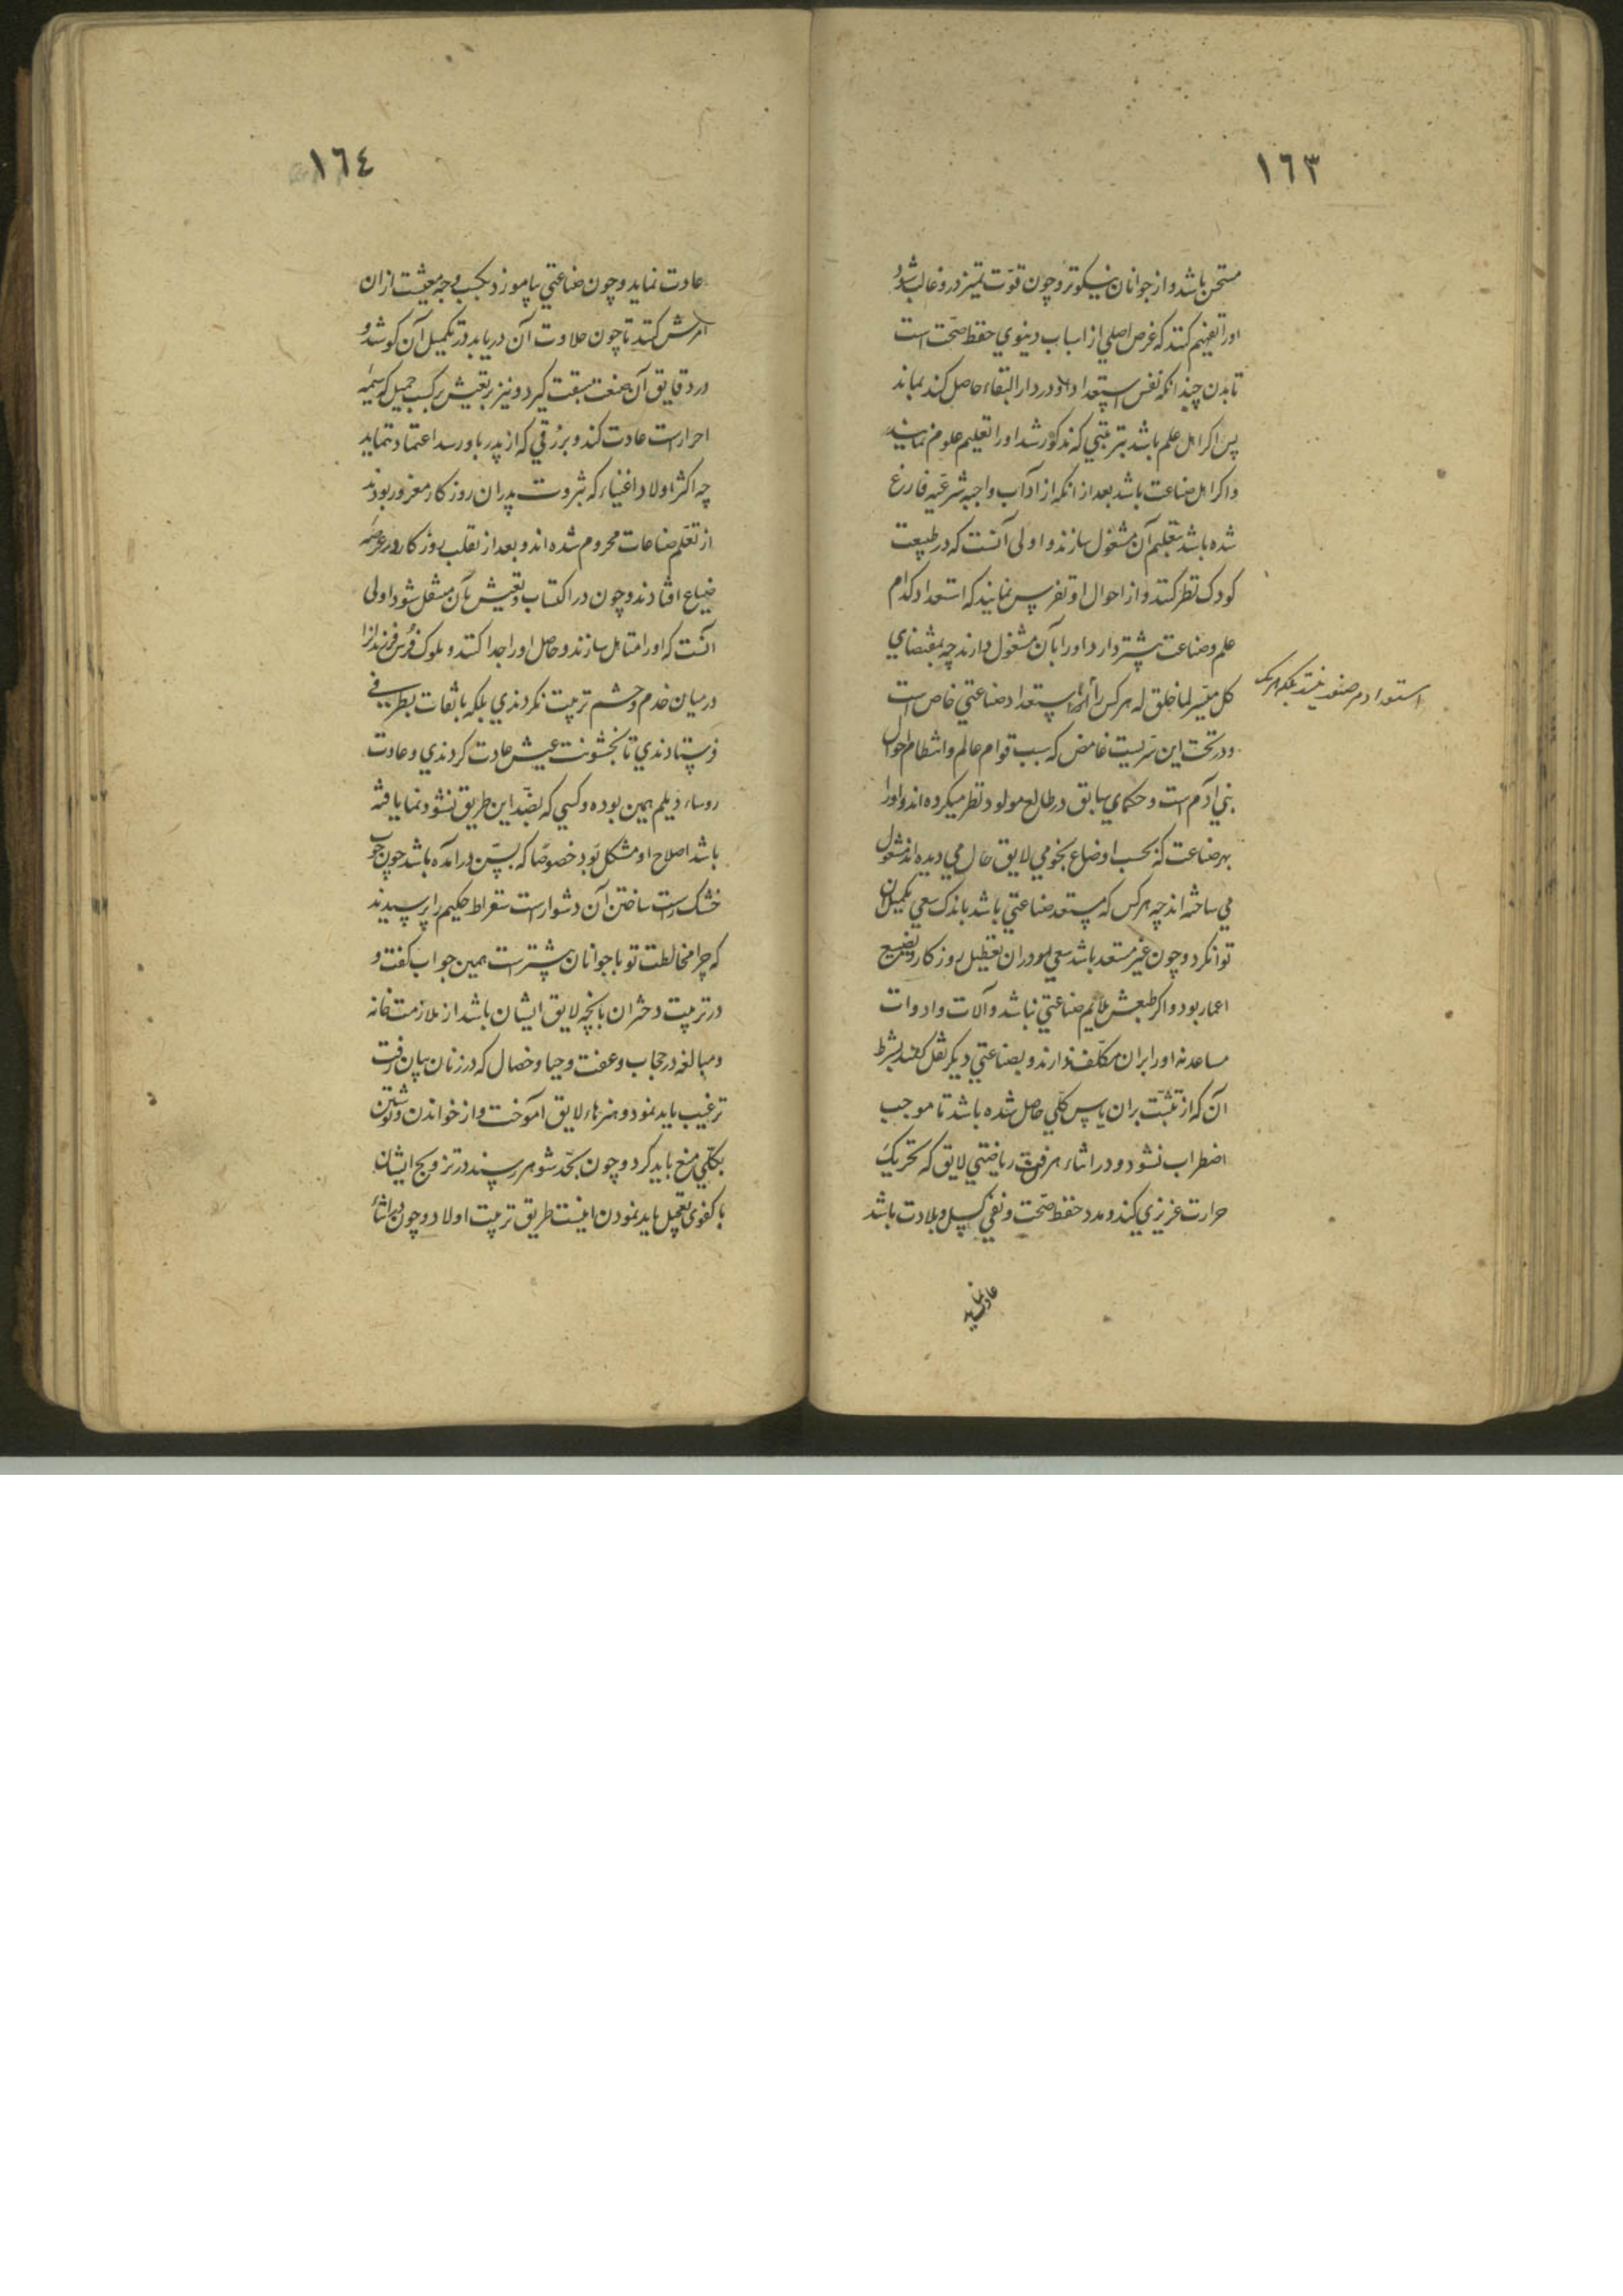 ١٦٣
مستحسن باشد و از جوانان نیکوتر و چون قوّت تمیز درو غالب شود
اورا تفهیم کنند که غرض اصلی از اسباب دینوی حفظ صحّت است
تا بدن چندانکه نفس استعداد دار در دار البقاء حاصل کند بماند
پس اکر اهل علم باشد بترتیبی که مذکور شد اورا تعلیم علوم نمایند
و اکر اهل صناعت باشد بعد از انکه از آداب واجبه شرعیّه فارغ
شده باشد بتعلیم آن مشغول سازند و اولی آنست که در طبیعت
کودک نظر کنند و از احوال او تفرس نمایند که استعداد کدام
علم و صناعت بیشتر دارد اورا بآن مشغول دارند چه بمقتضای
کل میسّر لما خلق له هرکس را استعداد صناعتی خاص است
و در تحت این سرّیست غامض که سبب قوام عالم و انتظام احوال
بنی آدم است و حکمای سابق در طالع مولود نظر میکرده اند و اورا
بهر صناعت که بحسب اوضاع نجومی لایق حال می دیده اند مشغول
می ساخته اند چه هرکس که مستعد صناعتی باشد باندک سعی تکمیل آن
تواند کرد و چون غیر مستعد باشد سعی او در ان تعطیل روزکار و تضییع
اعمار بود و اکر طبعش ملایم صناعتی نباشد و آلات و ادوات
مساعد نه اورا بران مکلّف ندارند و بصناعتی دیکر نقل کنند بشرط
آن که از تثبّت بران یاس کلّی حاصل شده باشد تا موجب
اضطراب نشود و در اثناء هر فن ریاضتی لایق که تحریک
حرارت غریزی کند و مدد حفظ صحّت و نفی کسل و بلادت باشد
عادت نماید
استعداد هر صنعت نیست بلکه هریک
١٦٤
عادت نماید و چون صناعتی بیاموزد بکسب وجه معیشت ازان
امرش کنند تا چون حلاوت آن دریابد در تکمیل آن کوشد و
در دقایق آن صنعت سبقت کیرد و نیز بر تعیش بر کسب جمیل که شیمه
احرار است عادت کند و بر رزقی که از پدر باو رسد اعتماد ننماید
چه اکثر اولاد اغنیاء که بثروت پدران روزکار مغرور بودند
از تعلّم صناعات محروم شده اند و بعد از تقلب روزکار در عرضه
ضیاع افتادند و چون در اکتساب و تعیش بآن مستقل شود اولی
آنست که اورا متاهل سازند و حاصل اورا جدا کنند و ملوک فُرس فرزندانرا
در میان خدم و حشم تربیت نکردندی بلکه با ثقات بطرفی
فرستادندی تا بخشونت عیش عادت کردندی و عادت
روساء دیلم همین بوده و کسی که بضدّ این طریق نشو و نما یافته
باشد اصلاح او مشکل بود خصوصًا که بسّن در آمده باشد چون چوب
خشک راست ساختن آن دشوار است سقراط حکیم را پرسیدند
که چرا مخالطت تو با جوانان بیشتر است همین جواب کفت و
در تربیت دختران بانچه لایق ایشان باشد از ملازمت خانه
و مبالغه در حجاب و عفت و حیا و خصال که در زنان بیان رفت
ترغیب باید نمود و هنرهاء لایق آموخت و از خواندن و نوشتن
بکلّی منع باید کرد و چون بحّد شوهر رسند در تزویج ایشان
با کفوی تعجیل باید نمودن اینست طریق تربیت اولاد و چون در اثناء